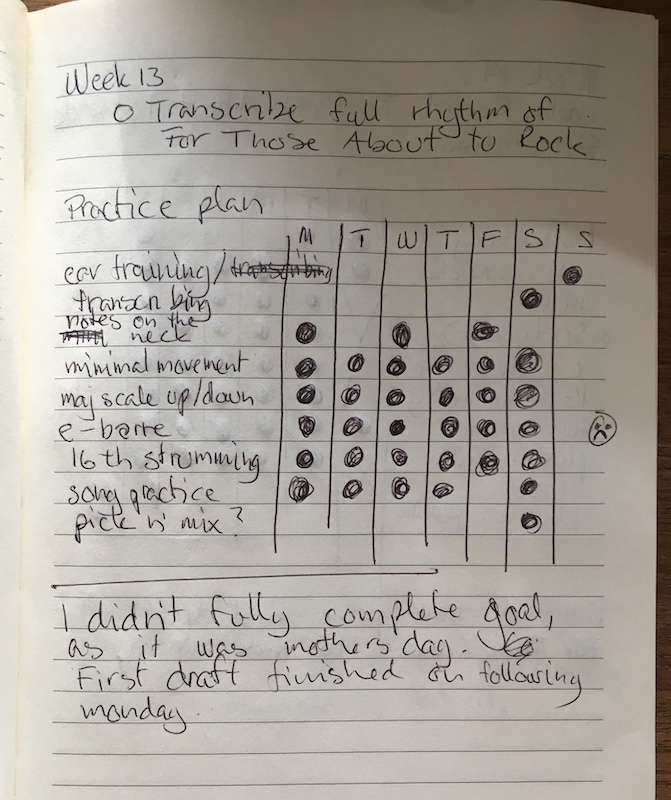 Week 13
O Transcribe full rhythm of
For Those About to Rock
Practice plan
M T W T F S S
ear training/transcribing
transcribing
notes on the
neck
minimal movement
maj scale up/down
e-barre
16th strumming
song practice
pick n' mix?
I didn't fully complete goal,
as it was mothers day.
First draft finished on following
monday.